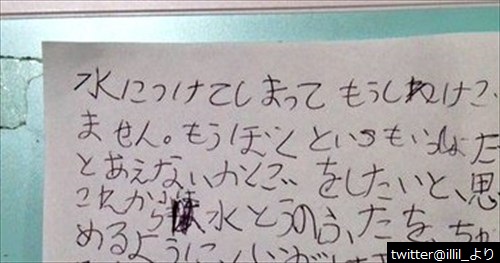 水につけてしまってもうしわけござい
ません。もうぼくといつもいっしょだ
とあえないかくごをしたいと、思
これから 水とうのふたを、ちゃ
めるように
twitter@illil_より